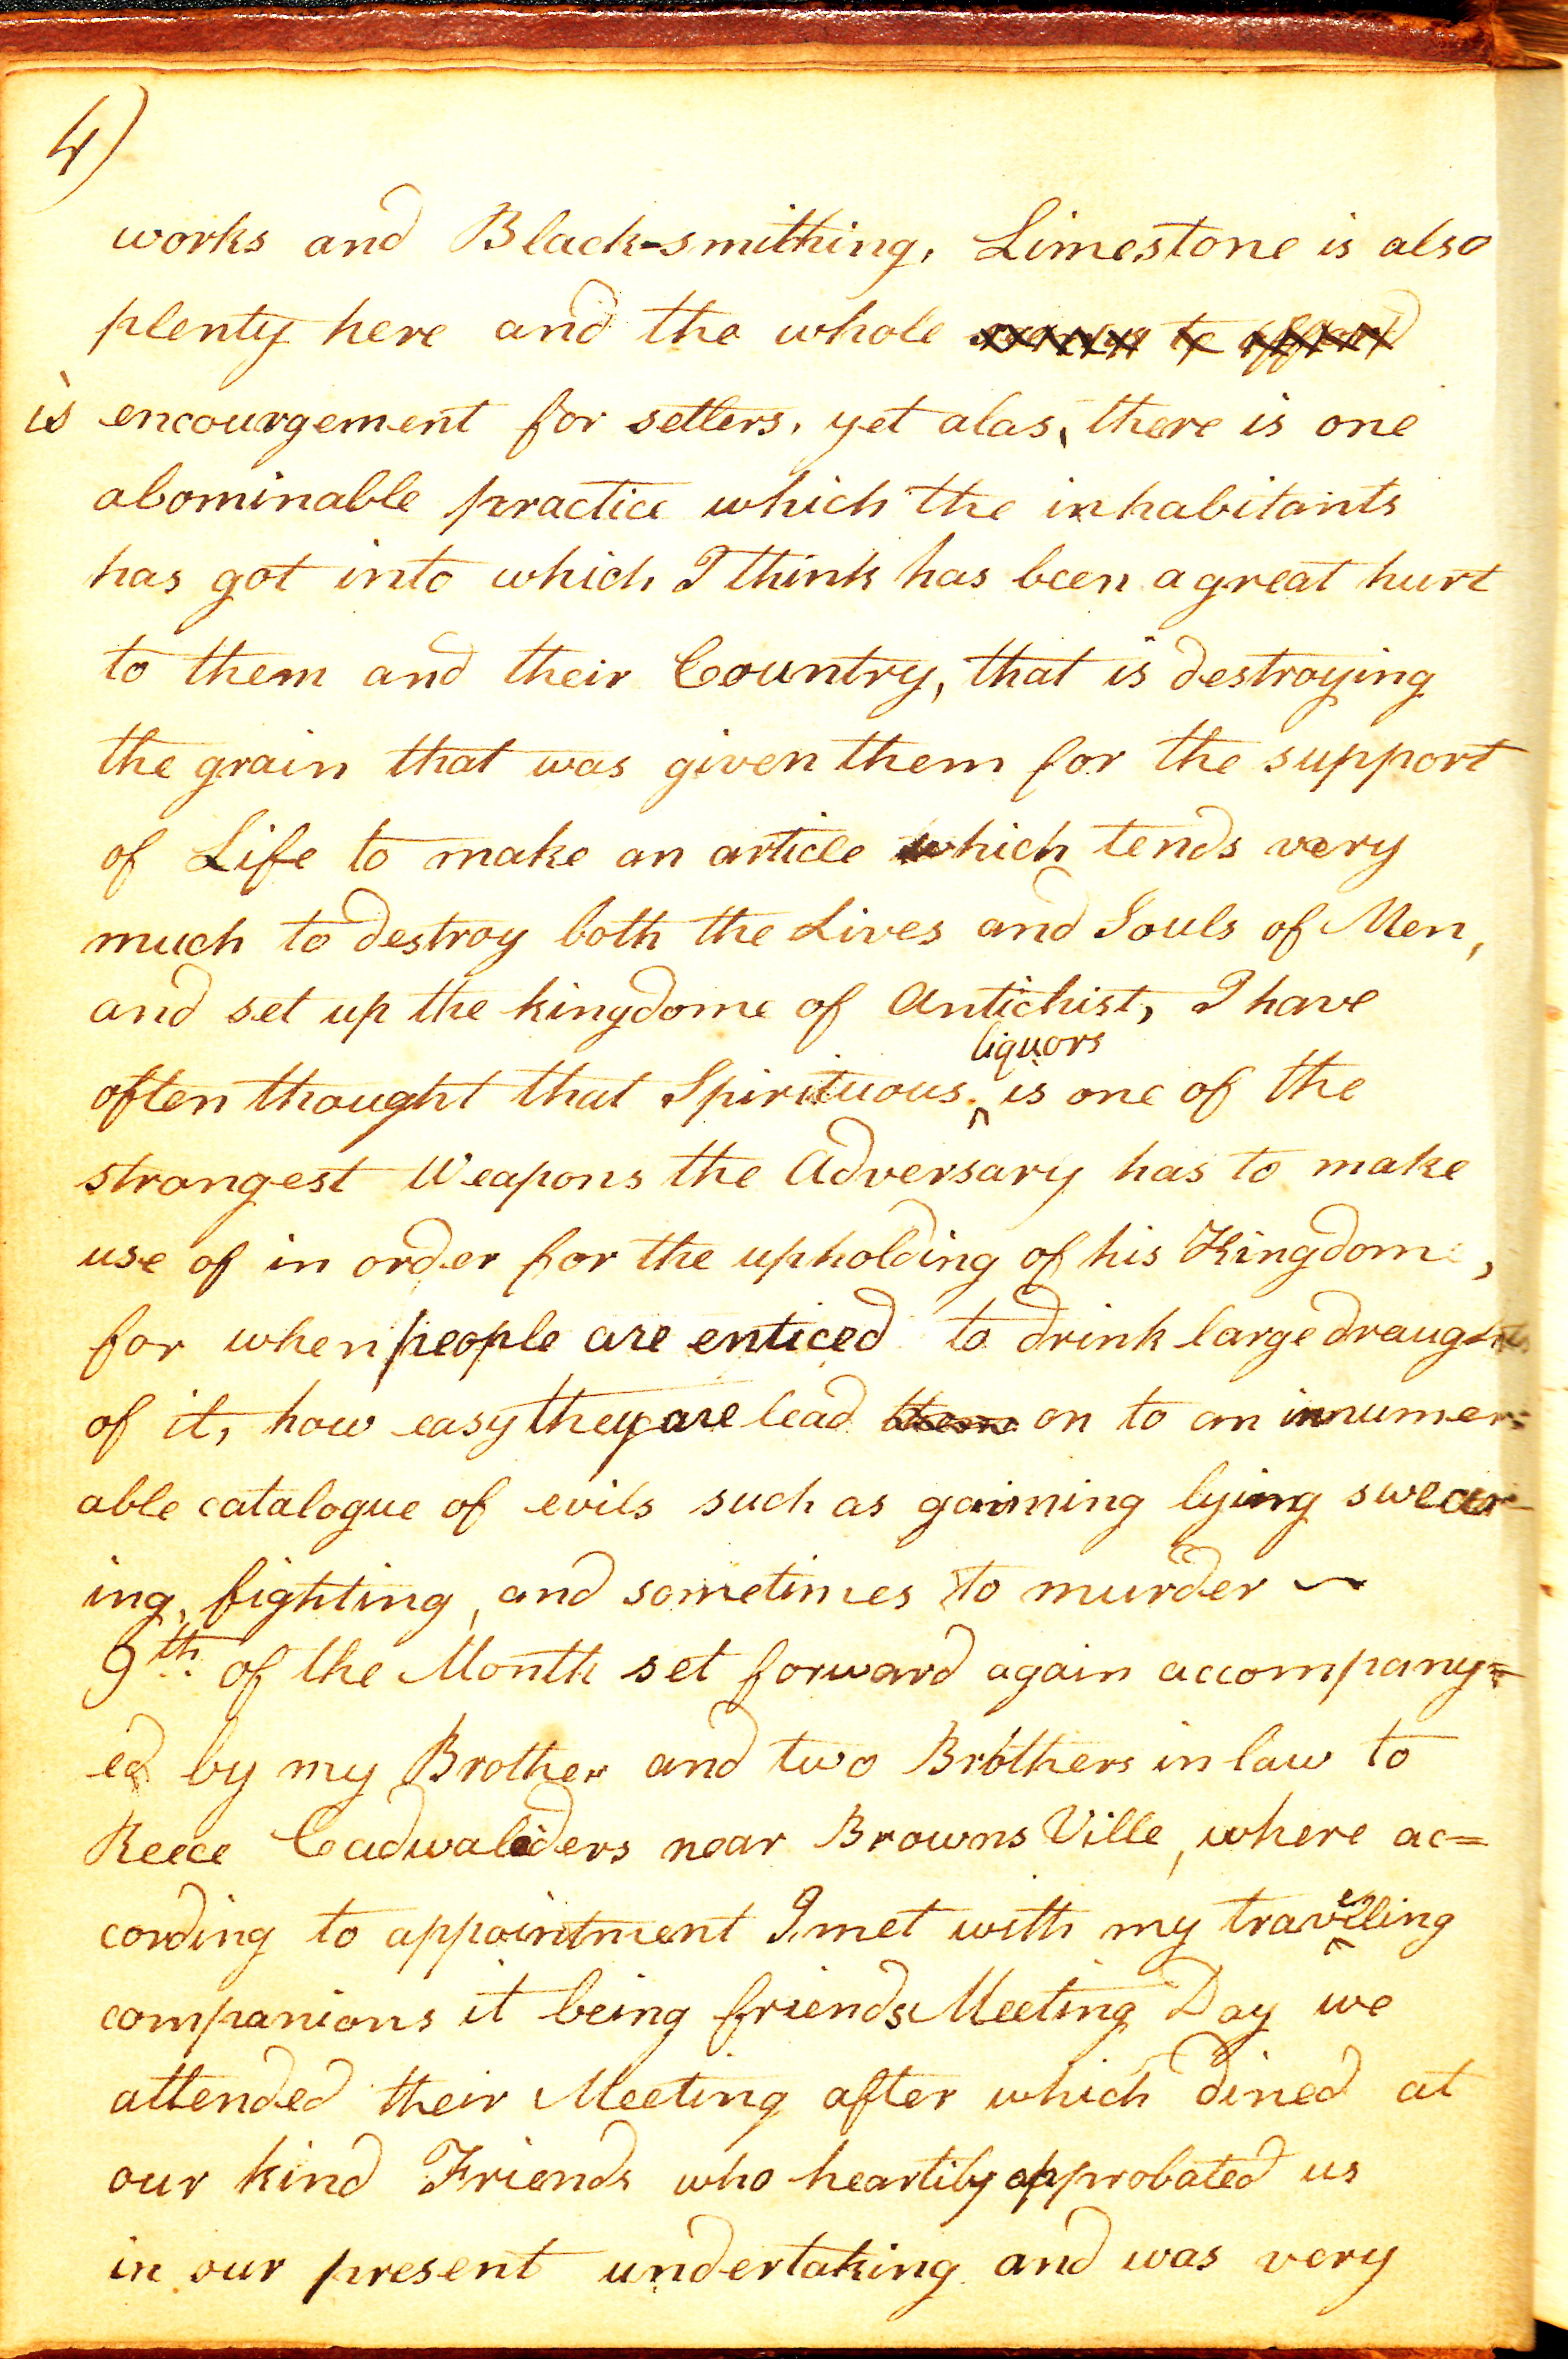 4)
works and Black-smithing, Limestone is also
plenty here and the whole
is encourgement for setlers, yet alas, there is one
abominable practice which the inhabitants
has got into which I think has been a great hurt
to them and their Country, that is destroying
the grain that was given them for the support
of Life to make an article which tends very
much to destroy both the Lives and Souls of Men,
and set up the kingdome of Antichist, I have
often thought that Spirituous liquors is one of the
strongest Weapons the Adversary has to make
use of in order for the upholding of his Kingdome,
for when people are enticed to drink large draughts
of it, how easy they are lead them on to an innumer-
able catalogue of evils such as gaiming lying swear-
ing, fighting, and sometimes to murder ~
9th of the Month set forward again accompany=
ed by my Brother and two Brothers in law to
Reece Cadwaliders near Browns Ville, where ac=
cording to appointment I met with my traveling
companions it being friends Meeting Day we
attended their Meeting after which dined at
our kind Friends who heartily approbated us
in our present undertaking and was very